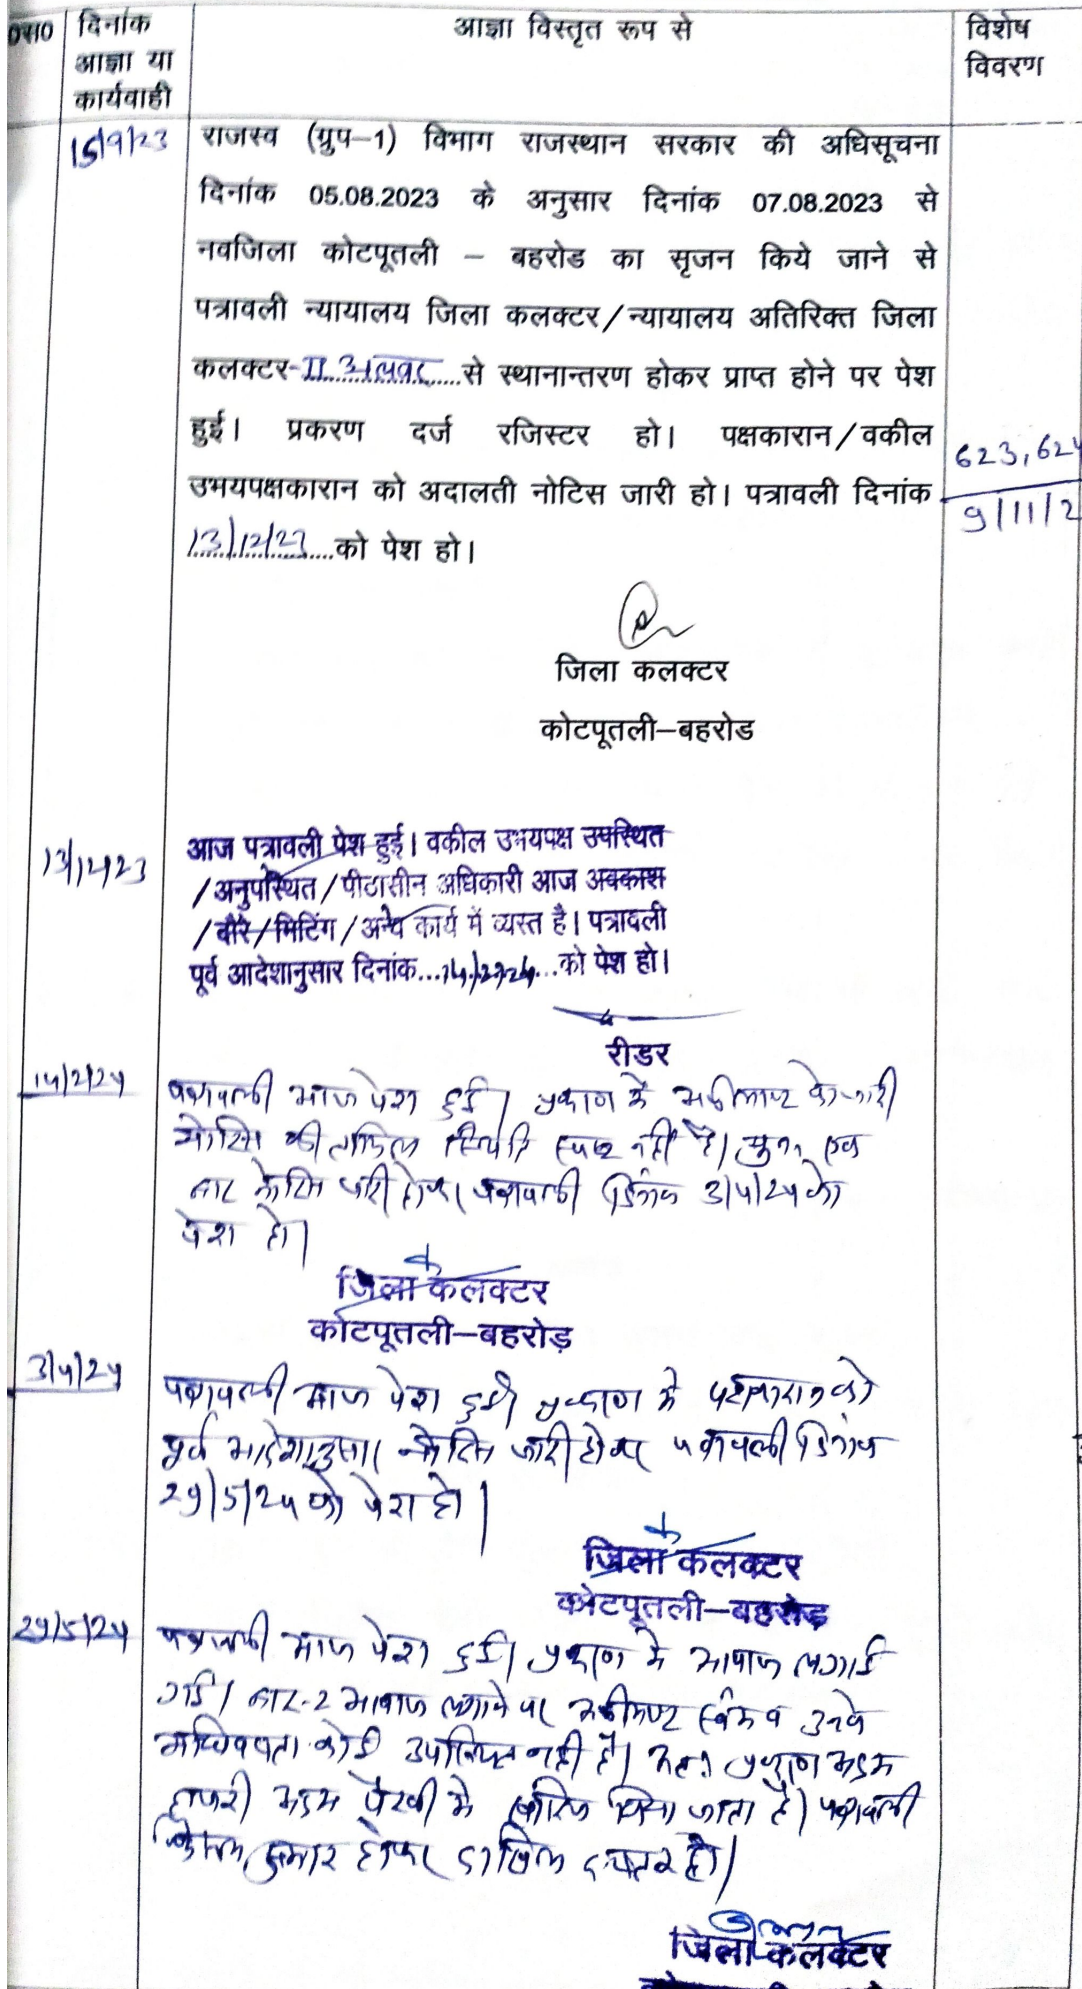 दिनांक
आज्ञा या
कार्यवाही
आज्ञा विस्तृत रूप से
विशेष
विवरण
15/9/23
राजस्व (ग्रुप–1) विभाग राजस्थान सरकार की अधिसूचना
दिनांक 05.08.2023 के अनुसार दिनांक 07.08.2023 से
नवजिला कोटपूतली – बहरोड का सृजन किये जाने से
पत्रावली न्यायालय जिला कलक्टर/न्यायालय अतिरिक्त जिला
कलक्टर-II अलवर से स्थानान्तरण होकर प्राप्त होने पर पेश
हुई। प्रकरण दर्ज रजिस्टर हो। पक्षकारान/वकील
उभयपक्षकारान को अदालती नोटिस जारी हो। पत्रावली दिनांक
13/12/23 को पेश हो।
623, 624
9/11/2
जिला कलक्टर
कोटपूतली–बहरोड
13/12/23
आज पत्रावली पेश हुई। वकील उभयपक्ष उपस्थित
/अनुपस्थित/पीठासीन अधिकारी आज अवकाश
/दौरे/मिटिंग/अन्य कार्य में व्यस्त है। पत्रावली
पूर्व आदेशानुसार दिनांक...14/2/24...को पेश हो।
रीडर
14/2/24
पत्रावली आज पेश हुई। प्रकरण में को जारी
नोटिस की तामिल स्थिति स्पष्ट नहीं है। पुनः एक
बार नोटिस जारी होकर पत्रावली दिनांक 3/4/24 को
पेश हो।
जिला कलक्टर
कोटपूतली–बहरोड़
3/4/24
पत्रावली आज पेश हुई। प्रकरण में पक्षकारान को
पूर्व आदेशानुसार नोटिस जारी होकर पत्रावली दिनांक
29/5/24 को पेश हो।
जिला कलक्टर
कोटपूतली–बहरोड़
29/5/24
पत्रावली आज पेश हुई। प्रकरण में आवाज लगाई
गई। बार-2 आवाज लगाने पर स्वंय व उनके
अधिवक्ता कोई उपस्थित नहीं है। अतः प्रकरण अदम
हाजरी अदम पैरवी में खारिज किया जाता है। पत्रावली
शुमार होकर दाखिल दफ्तर हो।
जिला कलक्टर